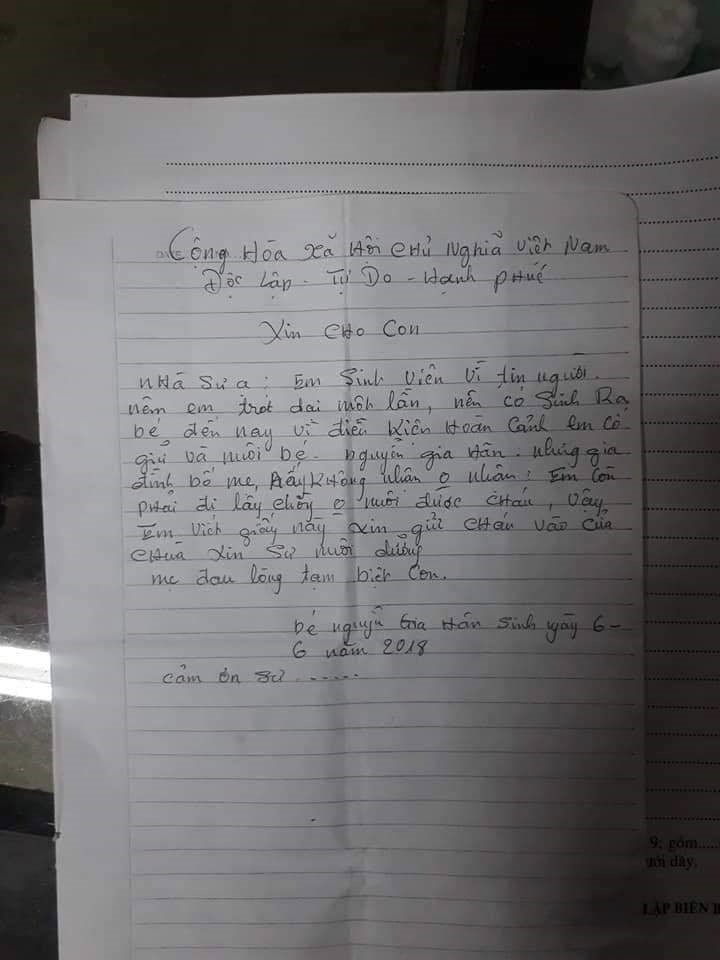 Cộng Hòa Xã Hội Chủ Nghĩa Việt Nam
Độc Lập - Tự Do - Hạnh Phúc
Xin Cho Con
nhà Sư a: Em Sinh Viên vì tin người.
nêm em trót dai môt lần, nên có Sinh Ra
bé đến nay vì điều Kiên Hoàn Cảnh em Cố
giữ và nuôi bé. nguyễn gia Hân. nhưng gia
đình bố mẹ, Đấy không nhân o nhân: Em Còn
phải đi lấy chồng o nuôi được cháu, vây
Em viết giấy này Xin gửi cháu vào cửa
chùa Xin Sư nuôi dưỡng
mẹ đau lòng tạm biệt Con.
bé nguyễn Gia Hân Sinh ngày 6-
6 năm 2018
cảm ơn sư ......
9; gồm....
ưới đây.
LẬP BIÊN B